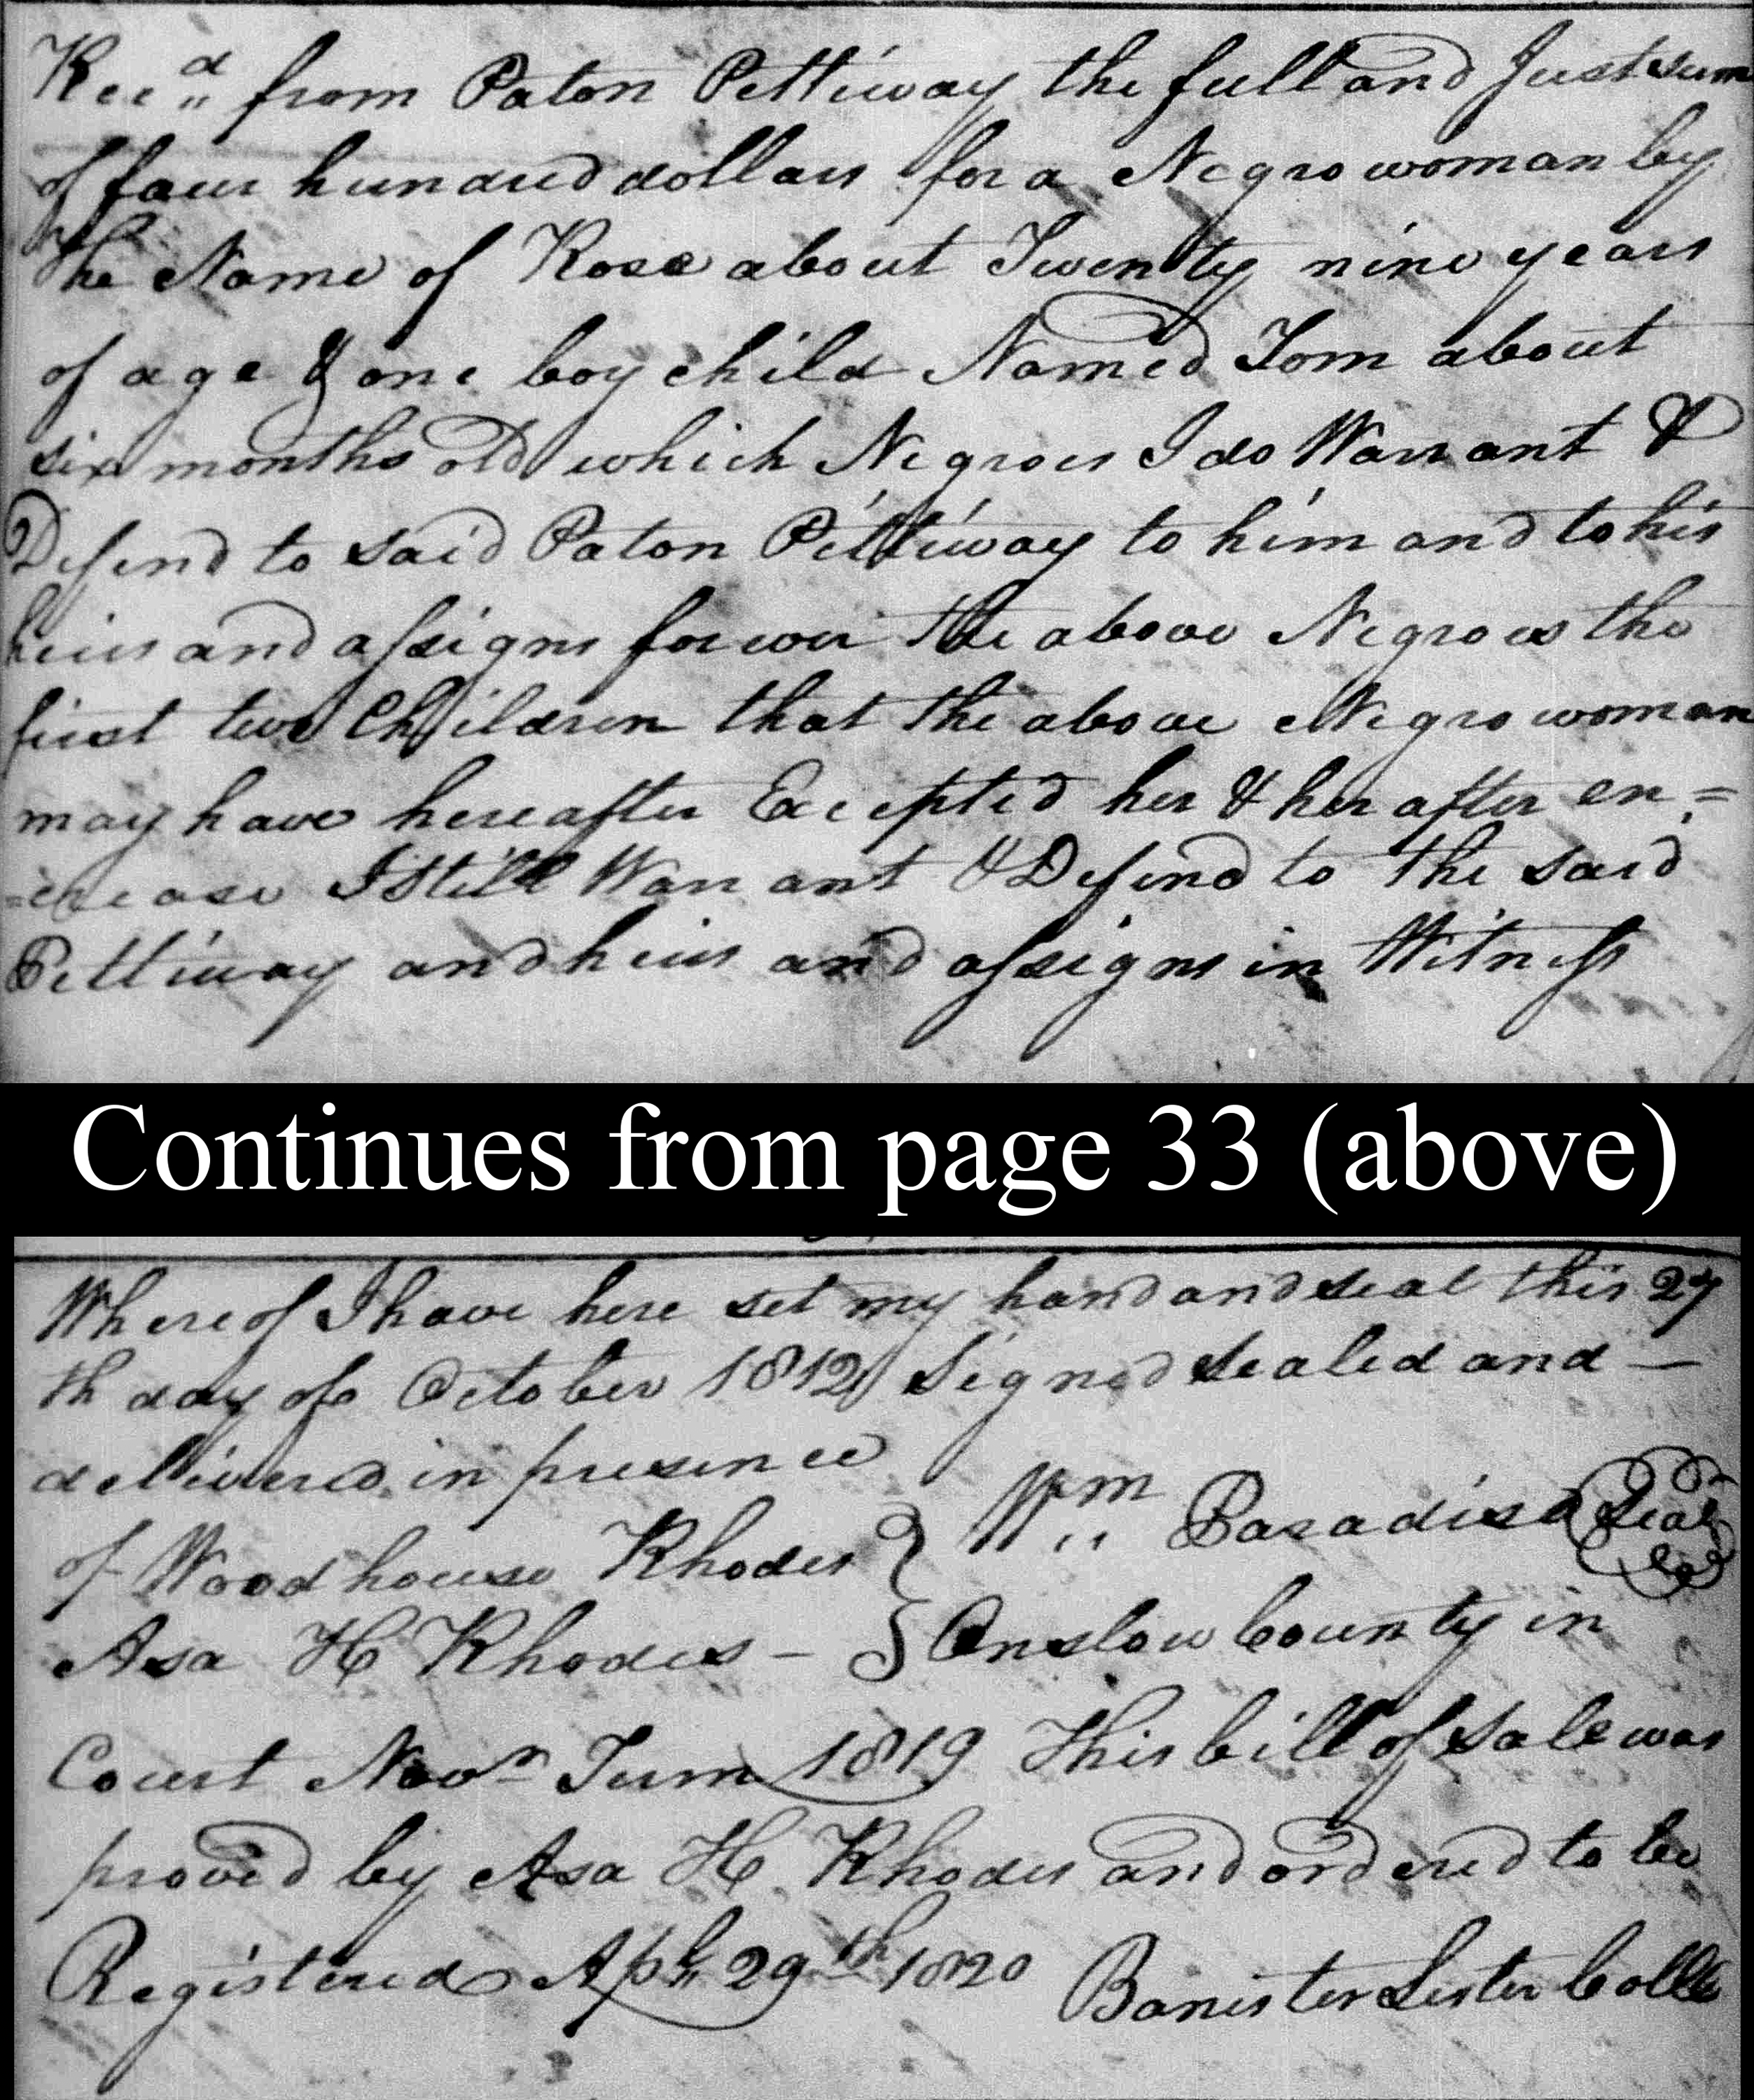 Recd from Paton Pettiway the full and Just sum
of four hundred dollars for a Negro woman by
the Name of Rose about Twenty nine years
of age & one boy child Named Tom about
six months old which Negroes I do Warrant &
Defend to said Paton Pettiway to him and to his
heirs and assigns forever the above Negroes the
first two Children that the above Negro woman
may have hereafter Excepted her & her after en=
=crease I Still Warrant & Defend to the said
Pettiway and heirs and assigns in Witness
Continues from page 33 (above)
Whereof I have here set my hand and seal this 27
th day of October 1812 Signed Sealed and —
dellivered in presence
of Woodhouse Rhodes } Wm Paradise Seal
Asa H Rhodes – } Onslow County in
Court Novr Term 1819 This bill of Sale was
proved by Asa H Rhodes and ordered to be
Registered Apl 29th 1820 Banister Lester